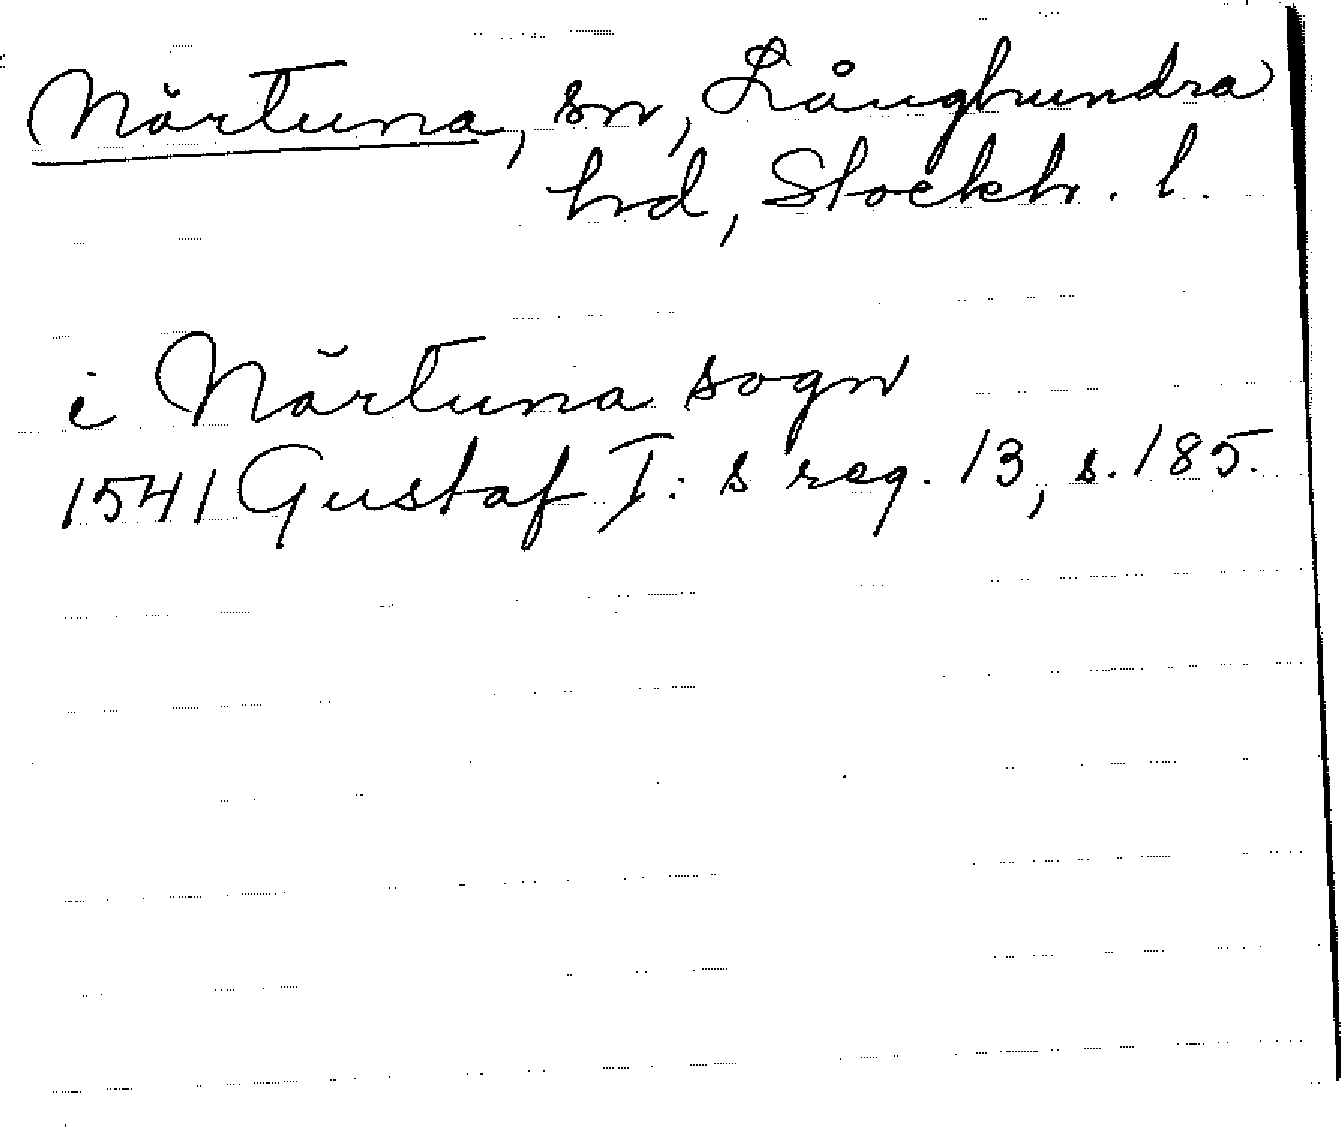 Närtuna, sn, Långhundra
hd, Stockh. l.
i Närtuna sogn
1541 Gustaf I: s reg. 13, s. 185.